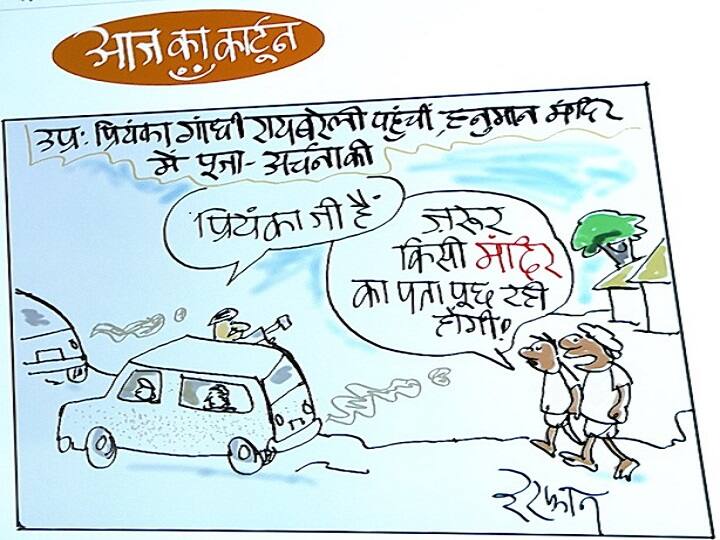 आज का कार्टून
उप्र: प्रियंका गांधी रायबरेली पहुंचीं, हनुमान मंदिर
में पूजा-अर्चना की
प्रियंका जी हैं
ज़रूर
किसी मंदिर
का पता पूछ रही
होंगी!
इरफ़ान